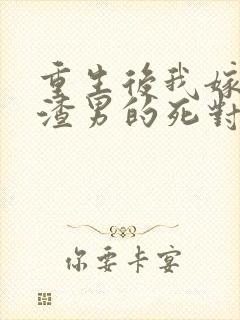 重生後我嫁
渣男的死對
你要卡宴